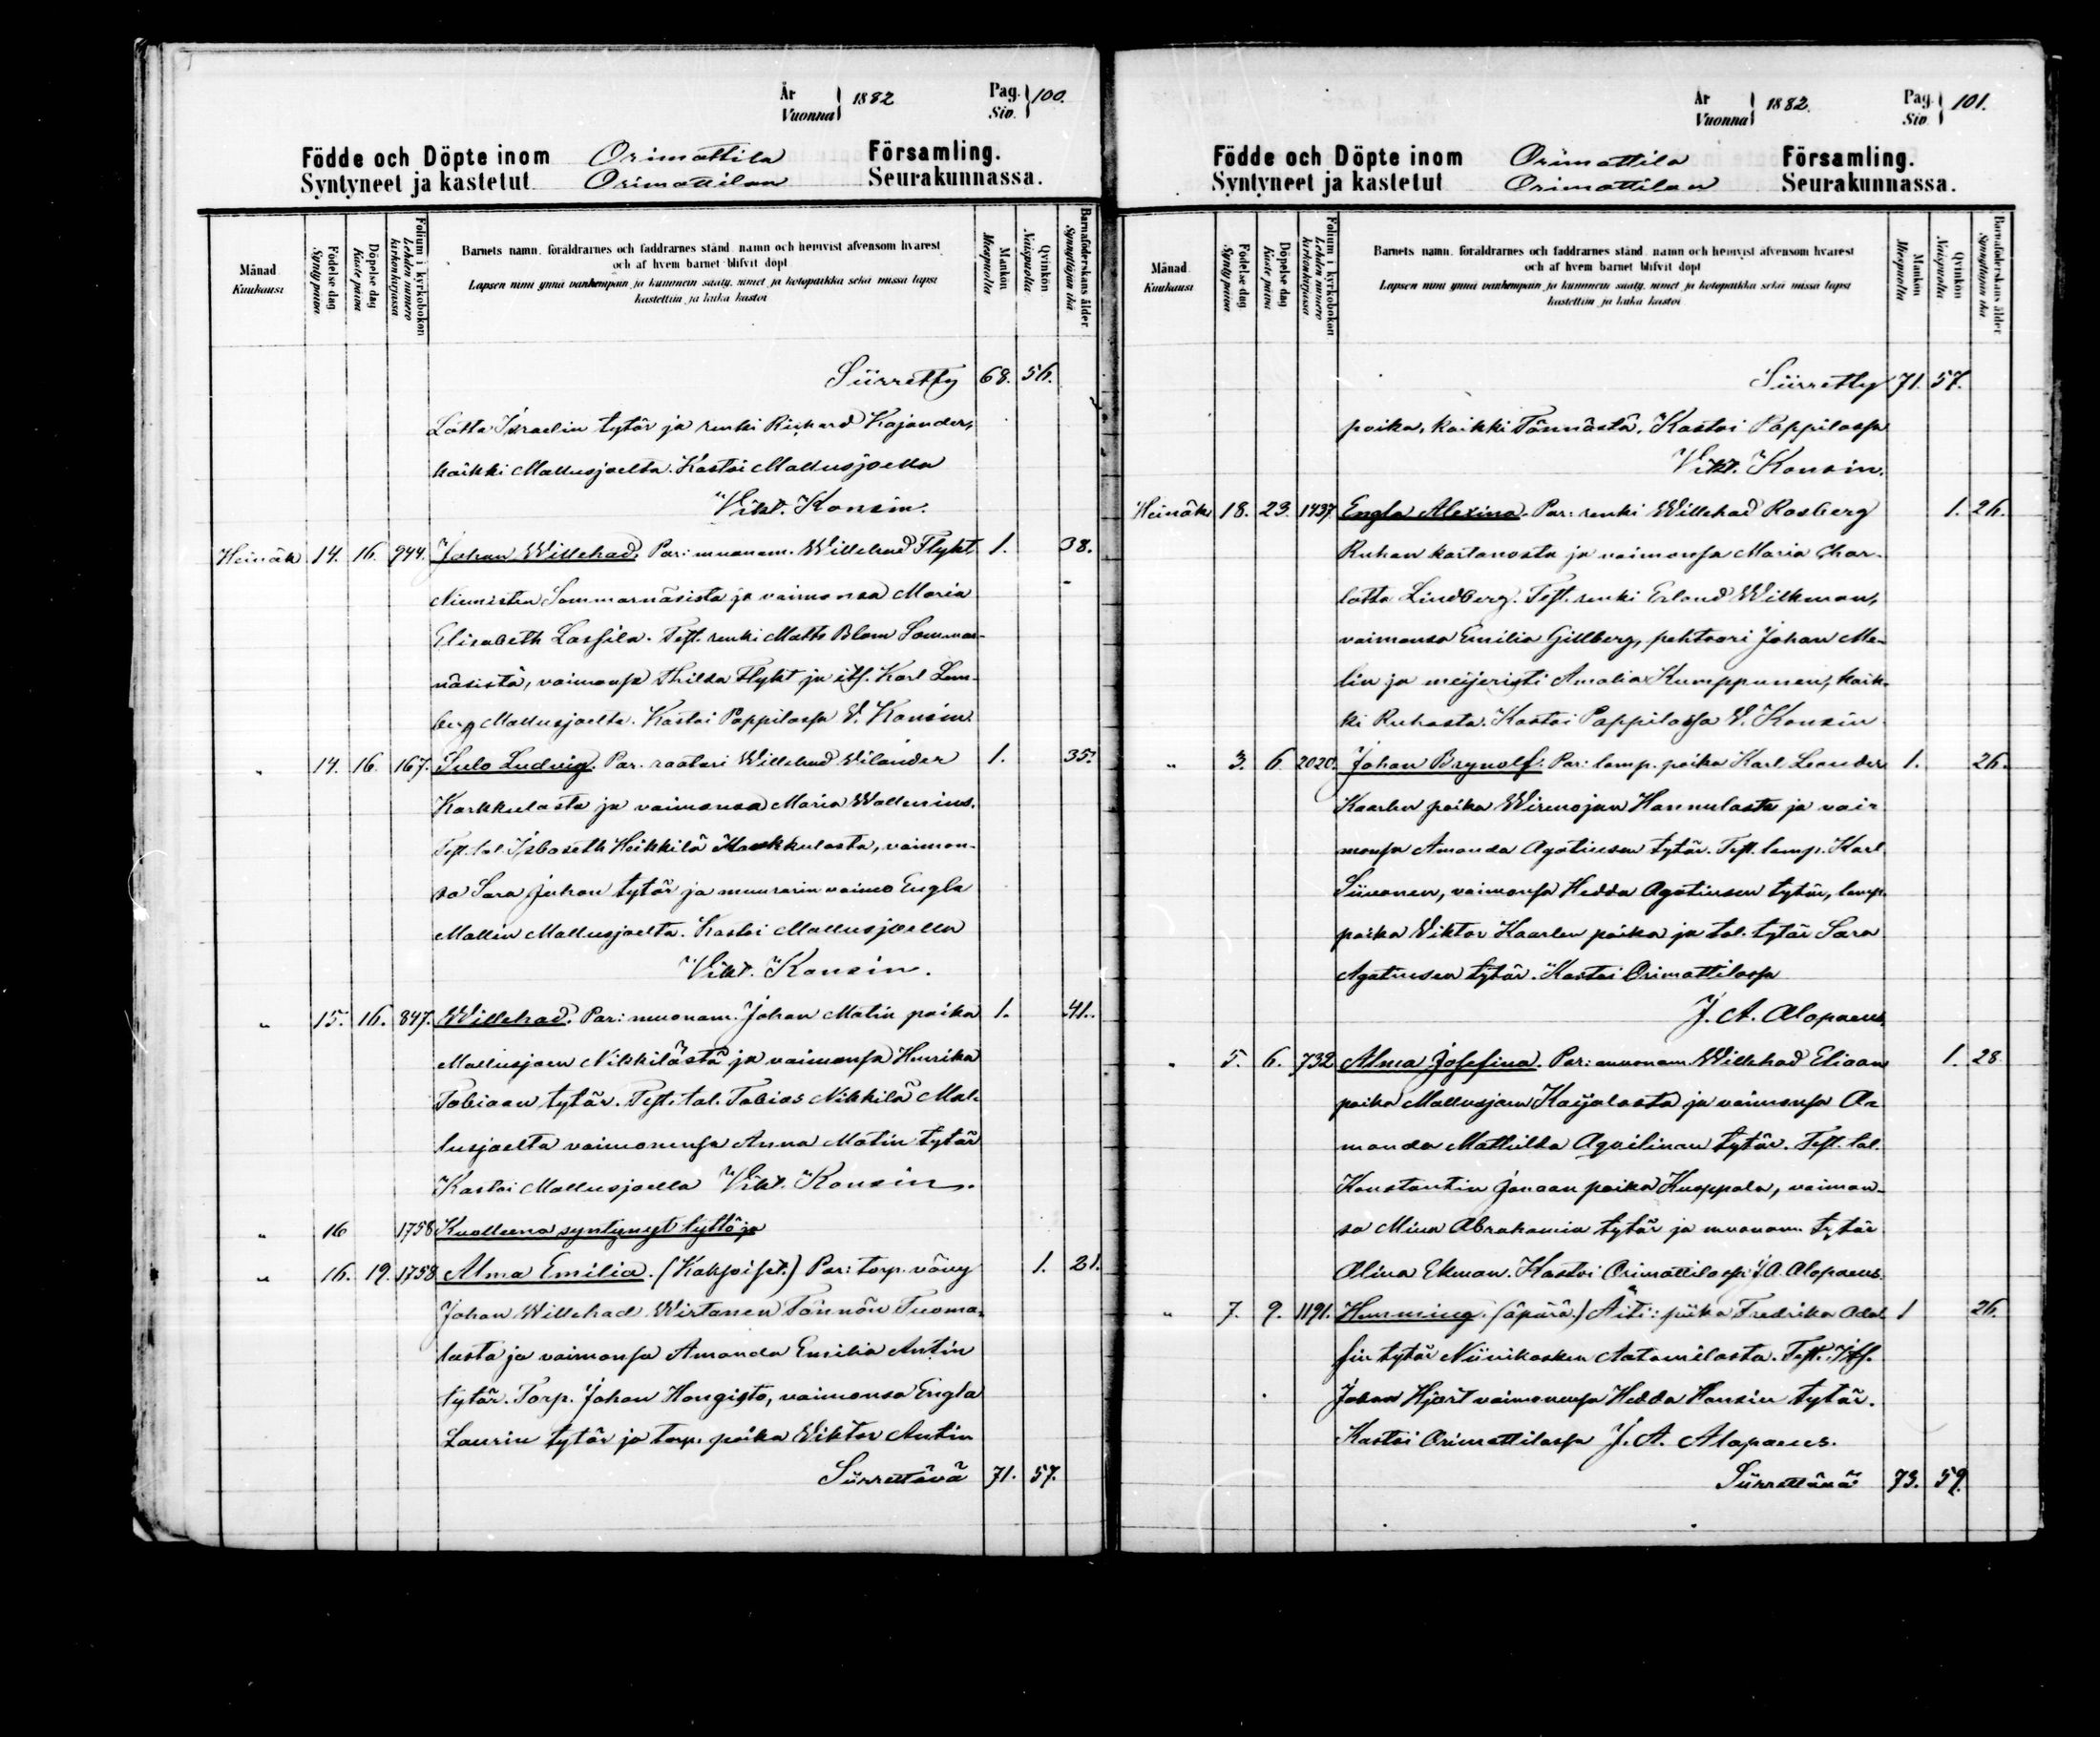 År
Vuonna
1882
Pag.
Siv.
100.
Födde och Döpte inom Orimattila Församling.
Syntyneet ja kastetut Orimattilan Seurakunnassa.
Månad
Kuukausi
Födelse dag
Synty päivä
Döpelse dag
Kaste päivä
Folium i kyrkobokon
Lehden numero kirkonkirjassa
Barnets namn, föräldrarnes och faddrarnes stånd, namn och hemvist äfvensom hvarest
och af hvem barnet blifvit döpt
Lapsen nimi ynnä vanhempain ja kummein sääty, nimet ja kotopaikka sekä missä lapsi
kastettiin ja kuka kastoi
Mankön
Miespuolia
Qvinkön
Naispuolia
Barnaföderskans ålder
Synnyttäjän ikä
Siirretty 68. 56.
Lotta Israelin tytär ja renki Richard Kajander,
kaikki Mallusjoelta. Kastoi Mallusjoella
Vikt. Konsin.
Heinäk 14. 16. 944. Johan Willehad. Par: muonam. Willehad Flykt 1. 38.
Niemisten Sommarnäsistä ja vaimonsa Maria
Elisabeth Lassila. Test. renki Matts Blom Sommar-
näsistä, vaimonsa Thilda Flykt ja its. Karl Lem-
berg Mallusjoelta. Kastoi Pappilassa V. Konsin.
„ 14. 16. 167. Sulo Ludvig. Par. raatari Willehad Wilander 1. 35.
Karkkulasta ja vaimonsa Maria Wallenius.
Test. tal. Heikkilä Karkkulasta, vaimon-
sa Sara Juhan tytär ja muurarin vaimo Engla
Mallin Mallusjoelta. Kastoi Mallusjoella
Vikt. Konsin.
„ 15. 16. 847. Willehad. Par: muonam. Johan Matin poika 1. 41.
Mallusjoen Nikkilästä ja vaimonsa Henrika
Tobiaan tytär. Test. tal. Tobias Nikkilä Mal-
lusjoelta vaimonensa Anna Matin tytär
Kastoi Mallusjoella Vikt. Konsin.
„ 16 1758 Kuolleena syntynyt tyttö ja
„ 16. 19. 1758 Alma Emilia. (Kaksoiset.) Par: torp. vävy 1. 21.
Johan Willehad Wirtanen Tönnön Tuoma-
lasta ja vaimonsa Amanda Emilia Antin
tytär. Torp. Johan Hongisto, vaimonsa Engla
Laurin tytär ja torp. poika Wiktor Antin
Siirrettävä 71. 57.
År
Vuonna
1882.
Pag.
Siv.
101.
Födde och Döpte inom Orimattila Församling.
Syntyneet ja kastetut Orimattilan Seurakunnassa.
Månad
Kuukausi
Födelse dag
Synty päivä
Döpelse dag
Kaste päivä
Folium i kyrkobokon
Lehden numero kirkonkirjassa
Barnets namn, föräldrarnes och faddrarnes stånd, namn och hemvist äfvensom hvarest
och af hvem barnet blifvit döpt
Lapsen nimi ynnä vanhempain ja kummein sääty, nimet ja kotopaikka sekä missä lapsi
kastettiin ja kuka kastoi
Mankön
Miespuolia
Qvinkön
Naispuolia
Barnaföderskans ålder
Synnyttäjän ikä
Siirretty 71. 57.
poika, kaikki Tönnöstä. Kastoi Pappilassa
Vikt. Konsin.
Heinäk 18. 23. 1437. Engla Alexina. Par: renki Willehad Rosberg 1. 26.
Ruhan kartanosta ja vaimonsa Maria Char-
lotta Lindberg. Test. renki Erland Wilkman,
vaimonsa Emilia Gillberg, pehtoori Johan Me-
lin ja meijeristi Amalia Kumppunen, kaik-
ki Ruhasta. Kastoi Pappilassa V. Konsin.
„ 3. 6. 2020. Johan Brynolf. Par: lamp. poika Karl Leander 1. 26.
Kaarlen poika Wirenojan Hannulasta ja vai-
monsa Amanda Agatiusen tytär. Test. lamp. Karl
Siivonen, vaimonsa Hedda Agatiusen tytär, lamp.
poika Wiktor Kaarlen poika ja tal. tytär Sara
Agatiusen tytär. Kastoi Orimattilassa
J. A. Alopaeus.
„ 5. 6. 732 Alma Josefina. Par: muonam. Willehad Eliaan 1. 28
poika Mallusjoen Kaijalasta ja vaimonsa A-
manda Mathilda Aqvilinan tytär. Test. tal.
Konstantin Jonaan poika Kuoppala, vaimon-
sa Mina Abrahamin tytär ja muonam. tytär
Alina Ekman. Kastoi Orimattilassa J. A. Alopaeus.
„ 7. 9. 1191. Hemming. (äpärä.) Äiti: piika Fredrika Adol- 1 26.
fin tytär Niinikosken Aatamilasta. Test. Its.
Johan Hjort vaimonensa Hedda Hansin tytär.
Kastoi Orimattilassa J. A. Alopaeus.
Siirrettävä 73. 59.